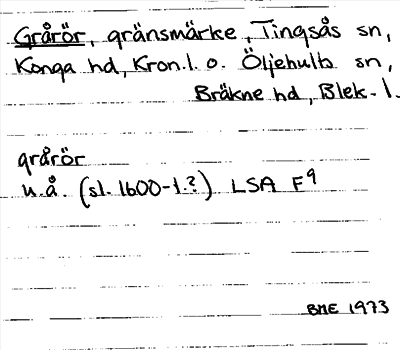 Grårör, gränsmärke, Tingsås sn,
Konga hd, Kron.l. o. Öljehults sn,
Bräkne hd, Blek. l.
grårör
u.å. (sl. 1600-t.?) LSA F9
BME 1973